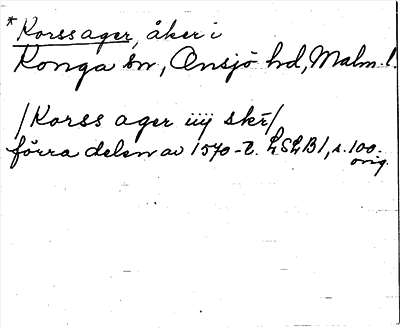 *Korssager, åker i
Konga sn, Onsjö hd, Malm. l.
/Korss ager iiij skr/
förra delen av 1570-t. LSLB1, s. 100.
orig.